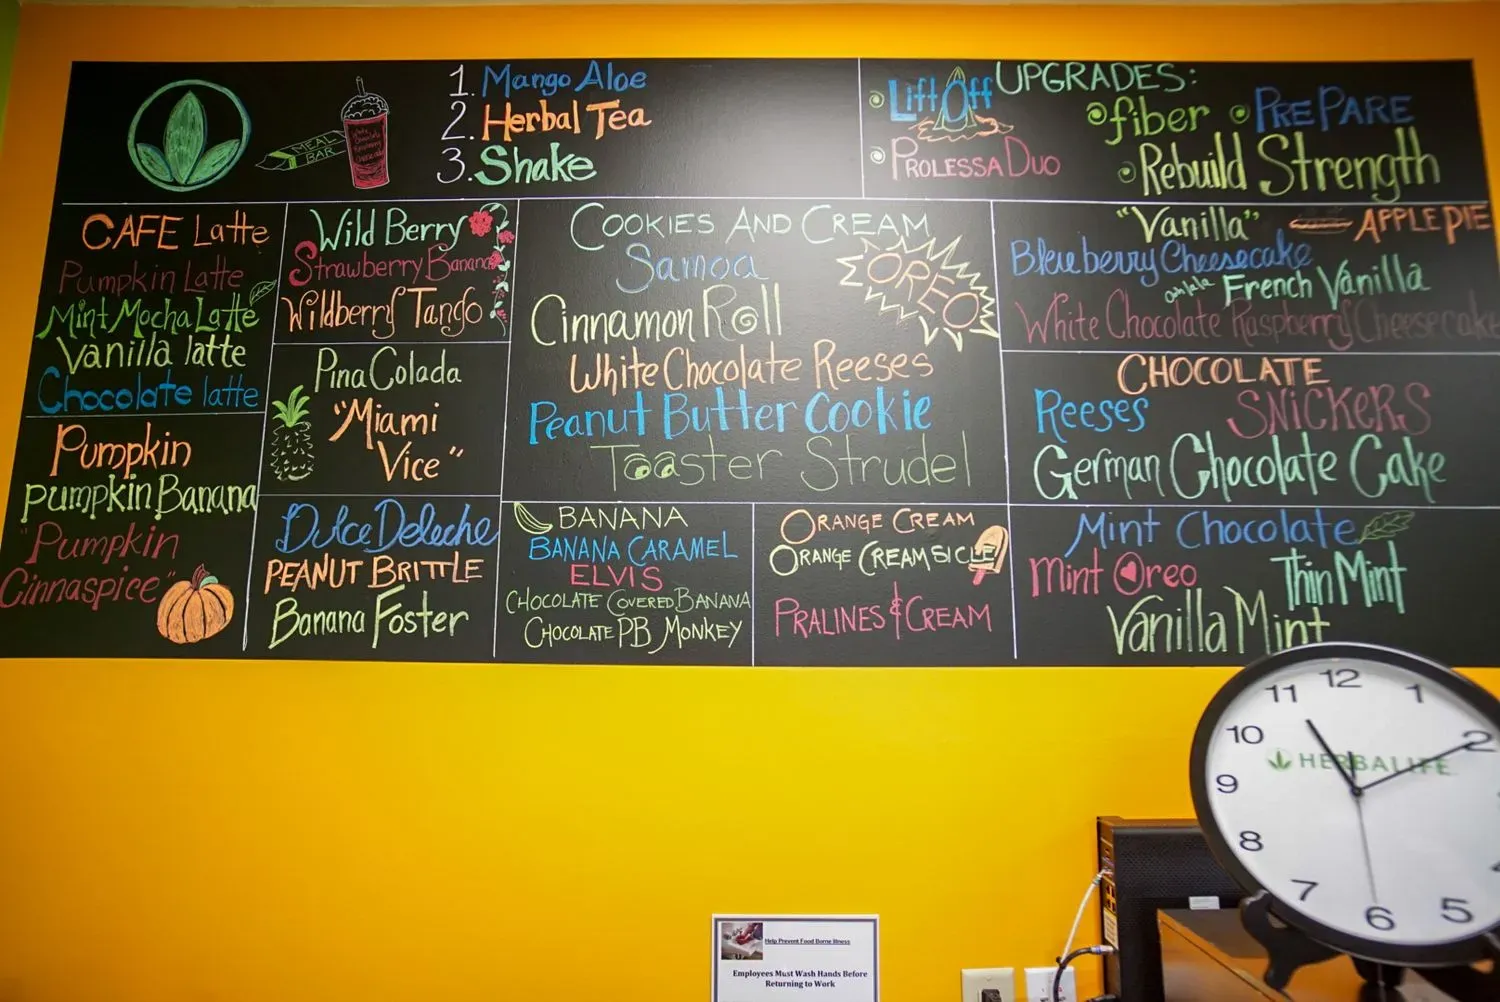 1. Mango Aloe
2. Herbal Tea
3. Shake
MEAL
BAR
UPGRADES:
Lift Off
fiber
PREPARE
PROLESSA DUO
Rebuild Strength
CAFE Latte
Pumpkin Latte
Mint Mocha Latte
Vanilla latte
Chocolate latte
Pumpkin
Pumpkin Banana
"Pumpkin
Cinnaspice"
Wild Berry
Strawberry Banana
Wildberry Tango
Pina Colada
"Miami
Vice"
Dulce Deleche
PEANUT BRITTLE
Banana Foster
COOKIES AND CREAM
Samoa
OREO
Cinnamon Roll
White Chocolate Reeses
Peanut Butter Cookie
Toaster Strudel
BANANA
BANANA CARAMEL
ELVIS
CHOCOLATE COVERED BANANA
CHOCOLATE PB MONKEY
ORANGE CREAM
ORANGE CREAMSICLE
PRALINES & CREAM
"Vanilla"
APPLE PIE
Blueberry Cheesecake
ooh lala French Vanilla
White Chocolate Raspberry Cheesecake
CHOCOLATE
Reeses
SNICKERS
German Chocolate Cake
Mint Chocolate
Mint Oreo
Thin Mint
Vanilla Mint
12
1
2
5
6
7
8
9
10
11
HERBALIFE
Help Prevent Food Borne Illness
Employees Must Wash Hands Before
Returning to Work